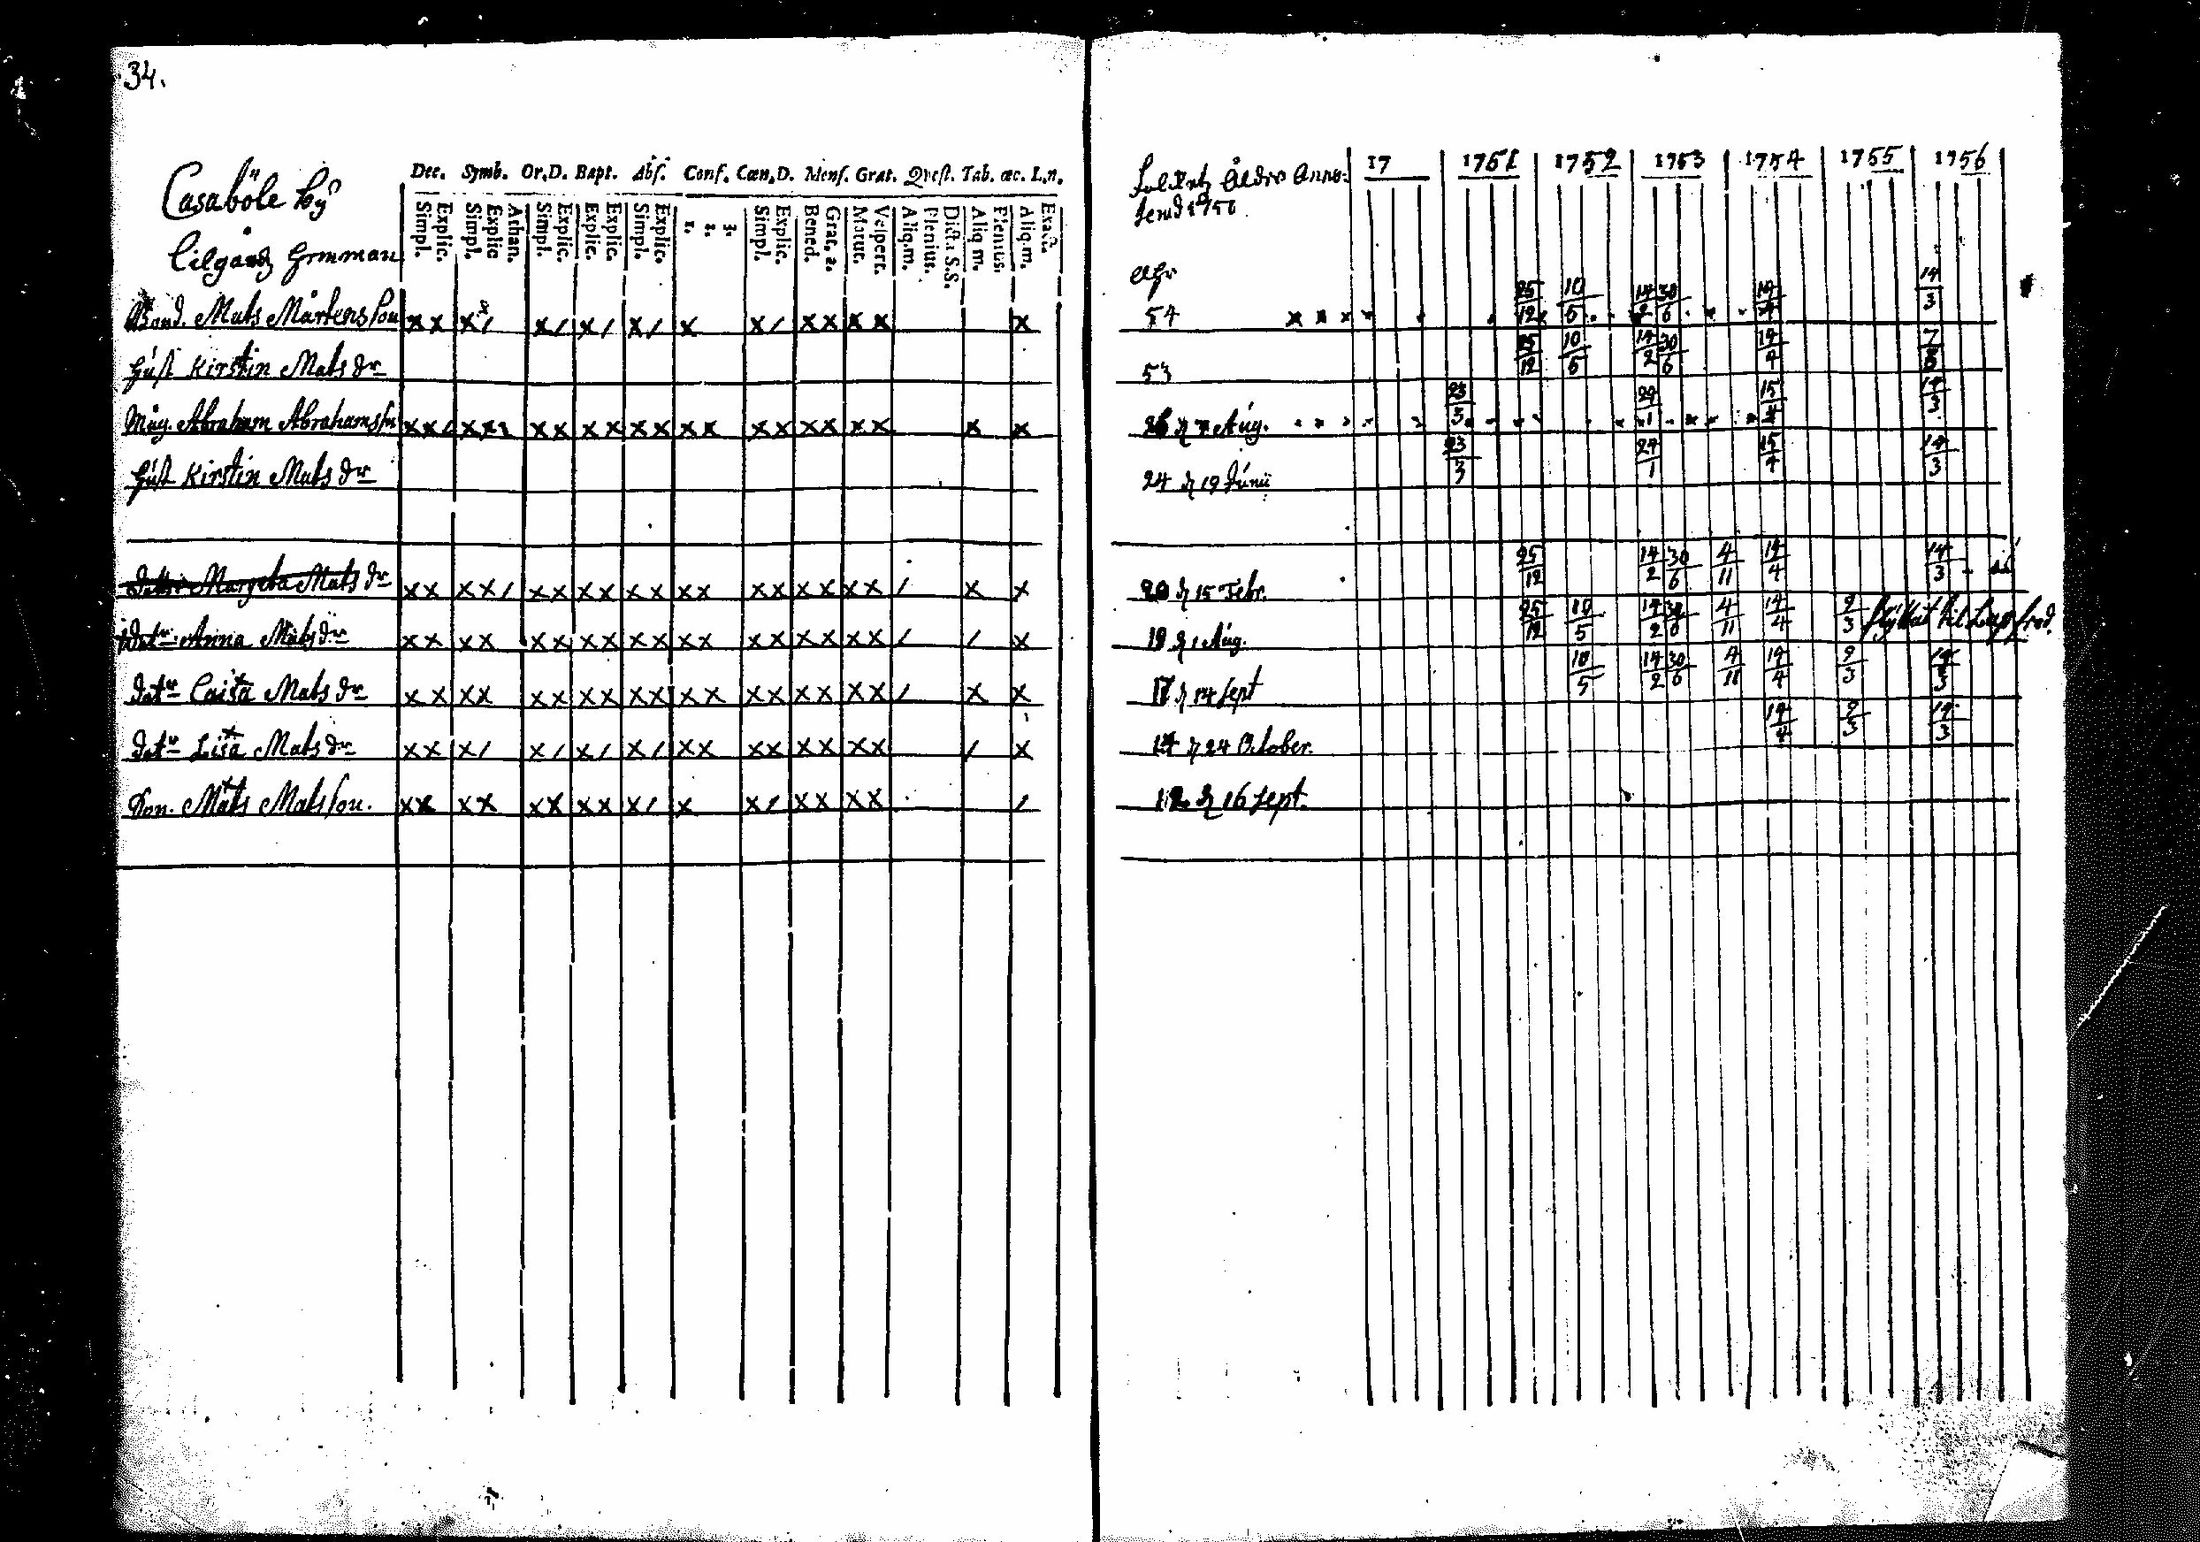 34.
Dec. Symb. Or.D. Bapt. Abſ. Conf. Cœn.D. Menſ. Grat. Qveſt. Tab. œc. L.n.
Simpl. Explic. Simpl. Explic Athan. Simpl. Explic. Explic. Explic. Simpl. Explic. 1. 2. 3. Simpl. Explic. Bened. Grat. 2. Matut. Veſpert. Aliq.m. Plenius. Dicta S.S. Aliq m. Plenius. Aliq.m. Exact.
Casaböle by
Mats Mårtensson x x x / x / x / x / x x / x x x x x
Hust Kirstin Mats dr
Måg. Abraham Abrahamsson x x / x x x x x x x x x x x x x x x x x x x
Hust Kirstin Mats dr
Margeta Mats dr x x x x / x x x x x x x x x x x x x x / x x
Anna Mats dr x x x x x x x x x x x x x x x x x x / / x
dotr Caisa Mats dr x x x x x x x x x x x x x x x x x x / x x
dotr Lisa Mats dr x x x / x / x / x / x x x x x x x x / x
Son. Mats Matsson. x x x x x x x x x / x x / x x x x /
Åldro Anno
17 1751 1752 1753 1754 1755 1756
54 25/12 10/5 14/2 30/6 14/4 14/3
53 25/12 10/5 14/2 30/6 14/4
Aug. 23/3 15/4 14/3
24 d 19 Junii 23/3 15/4 14/3
20 d 15 Febr. 25/12 14/2 30/6 4/11 14/4 14/3
d 1 Aug. 25/12 10/5 14/2 30/6 4/11 14/4 9/3 flyttat til
17 d 14 Sept 10/5 14/2 30/6 4/11 14/4 9/3 14/3
14 d 24 October. 14/4 9/3 14/3
12 d 16 Sept.